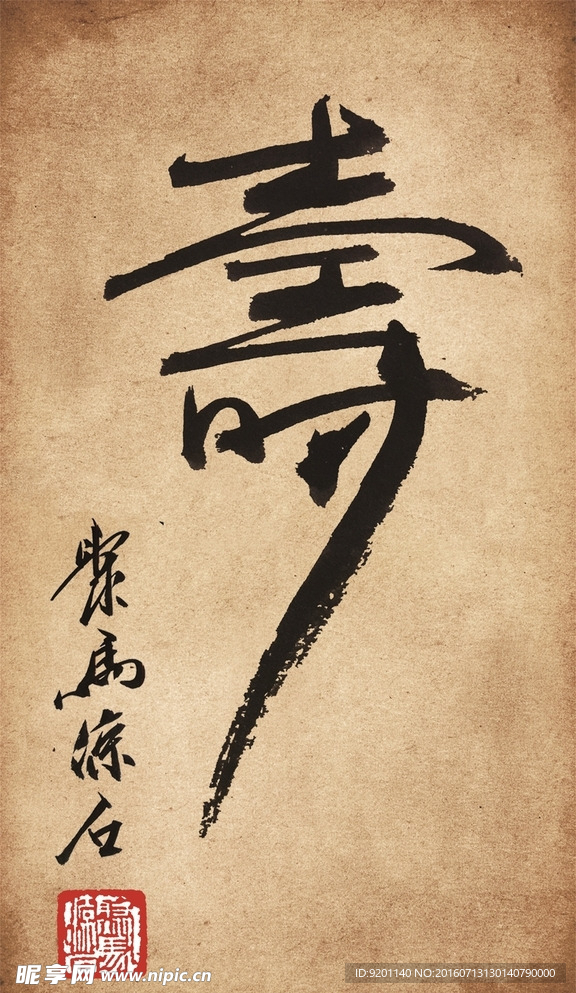 壽
聚馬涼石
昵享网 www.nipic.cn
ID:9201140 NO:20160713130140790000